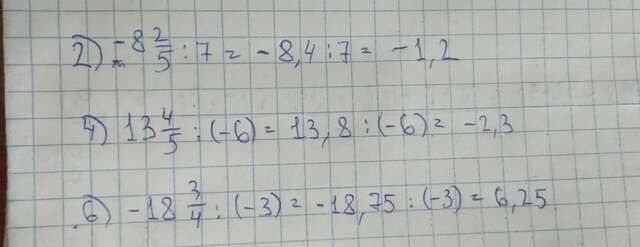 2) -8 2/5 : 7 = -8,4 : 7 = -1,2
4) 13 4/5 : (-6) = 13,8 : (-6) = -2,3
6) -18 3/4 : (-3) = -18,75 : (-3) = 6,25